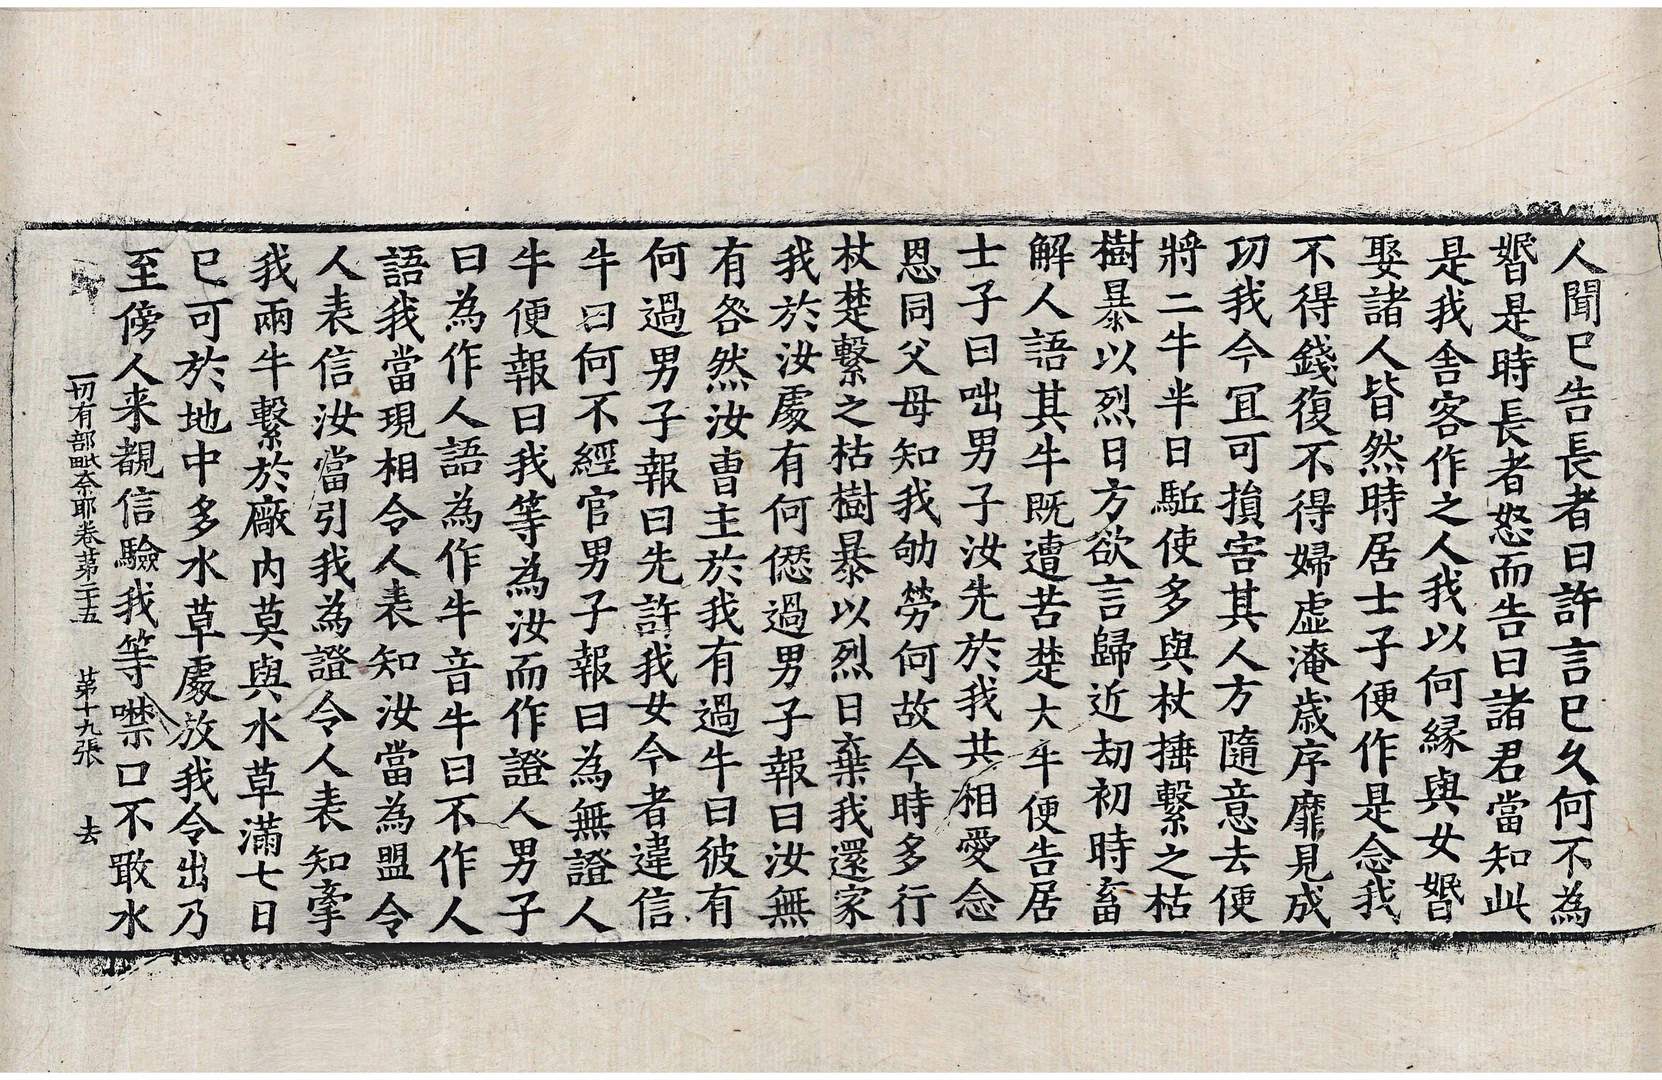 人聞已告長者曰許言已久何不為
婚是時長者怒而告曰諸君當知此
是我舍客作之人我以何縁與女婚
娶諸人皆然時居士子便作是念我
不得錢復不得婦虛淹歲序靡見成
功我今冝可損害其人方隨意去便
將二牛半日駈使多與杖捶繫之枯
樹暴以烈日方欲言歸近劫初時畜
解人語其牛既遭苦楚大牛便告居
士子曰咄男子汝先於我共相愛念
恩同父母知我劬勞何故今時多行
杖楚繫之枯樹暴以烈日棄我還家
我於汝處有何𠎝過男子報曰汝無
有咎然汝曹主於我有過牛曰彼有
何過男子報曰先許我女今者違信
牛曰何不經官男子報曰為無證人
牛便報曰我等為汝而作證人男子
曰為作人語為作牛音牛曰不作人
語我當現相令人表知汝當為盟令
人表信汝當引我為證令人表知牽
我兩牛繫於廠内莫與水草滿七日
已可於地中多水草處放我令出乃
至傍人来覩信驗我等噤口不敢水
一切有部毗奈耶卷苐二十五 苐十九張 去